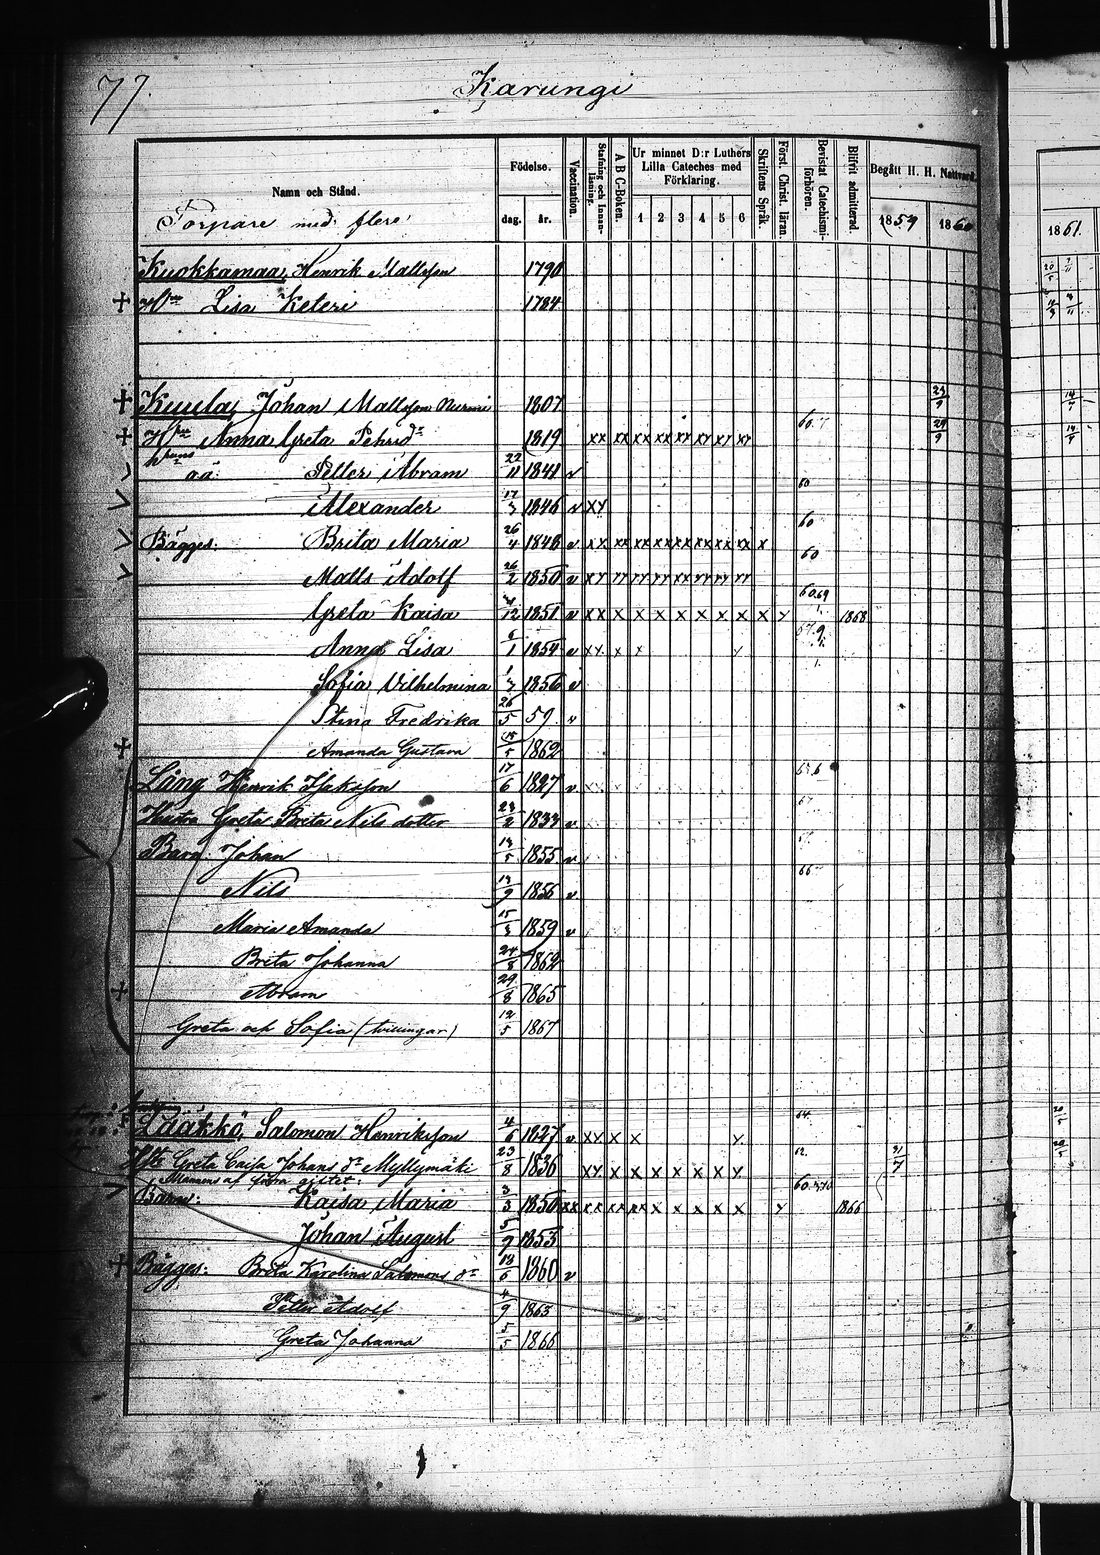 77.
Karungi
Namn och Stånd.
Torpare med flere
Födelse.
dag. år.
Vaccination.
Stafning och Innanläsning.
A B C-Boken.
Ur minnet D:r Luthers Lilla Cateches med Förklaring.
1 2 3 4 5 6
Skriftens Språk.
Först. Christ. läran.
Bevistat Catechismiförhören.
Blifvit admitterad
Begått H. H. Nattvard.
1859 1860
1861.
Kuokkamaa, Henrik Mattsson 1790
+ H:n Lisa Keteri 1784
+ Kuula, Johan Mattsson Nurmi 1807 23/9
+ H:n Anna Greta Pehrsd:r 1819 xx xx xx xx xx xx xx xx 60. 29/9
a.ä: Petter Abram 22/11 1841 v
Alexander 17/3 1846 v xx 60
Bägges: Brita Maria 26/4 1848 v xx xx xx xx xx xx xx xx x 60
Matts Adolf 26/2 1850 v xx xx xx xx xx xx xx xx 60
Greta Kaisa 12 1851 v xx x x x x x x x x x 60.69 1868
Anna Lisa 6/1 1854 v xx x x x
Sofia Vilhelmina 1/3 1856 v
Stina Fredrika 26/5 59. v
+ Amanda Gustava 15/5 1862
Lång Henrik Isaksson 17/6 1827 v
Hustru Greta Brita Nils dotter 23/2 1833 v
Barn: Johan 13/5 1855 v
Nils 13/9 1856 v 66
Maria Amanda 15/3 1859 v
Brita Johanna 24/8 1862
+ Abram 29/8 1865
Greta och Sofia (tvillingar) 12/5 1867
Lääkkö, Salomon Henriksson 4/6 1827 v xx x x x 64.
H:st Greta Caisa Johans d:r Myllymäki 23/8 1836 xx x x x x x x x 12. 31/7
Mannens af förra giftet:
Barn: Kaisa Maria 3/3 1850 xx xx xx xx x x x x x x 1866
Johan August 5/9 1853
+ Bägges: Brita Karolina Salomons d:r 13/6 1860 v
Petter Adolf 4/9 1863
Greta Johanna 5/5 1866